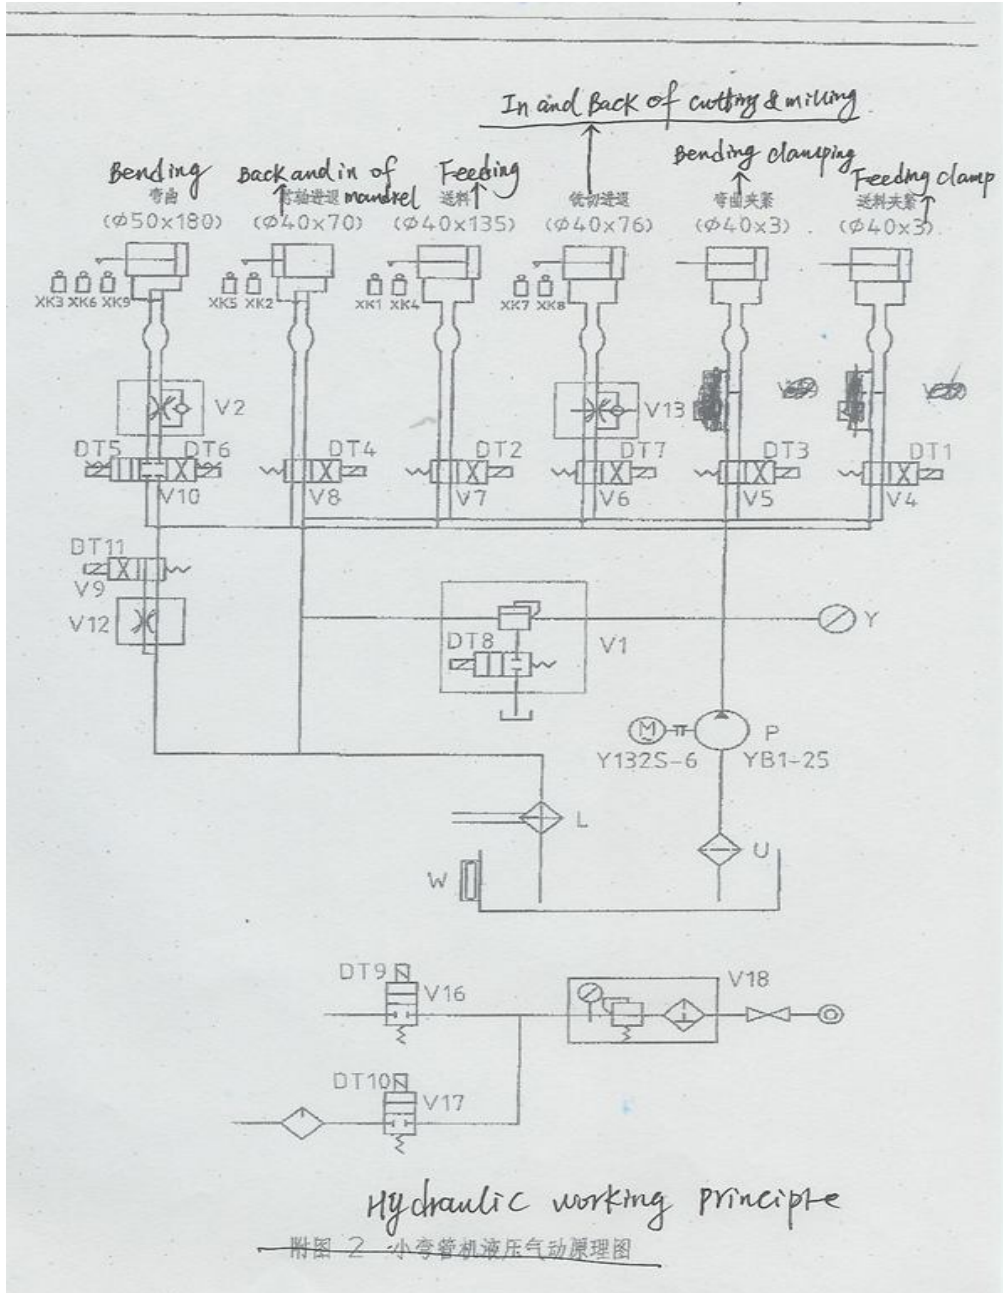 In and Back of cutting & milling
Bending
Back and in of mandrel
Feeding
Bending clamping
Feeding clamp
弯曲
芯轴进退
送料
铣切进退
弯曲夹紧
送料夹紧
(Φ50x180)
(Φ40x70)
(Φ40x135)
(Φ40x76)
(Φ40x3)
(Φ40x3)
XK3 XK6 XK9
XK5 XK2
XK1 XK4
XK7 XK8
V2
V13
DT5
DT6
DT4
DT2
DT7
DT3
DT1
V10
V8
V7
V6
V5
V4
DT11
V9
V12
DT8
V1
Y
M
P
Y132S-6
YB1-25
L
U
W
DT9
V16
V18
DT10
V17
Hydraulic working principle
附图 2 小弯管机液压气动原理图